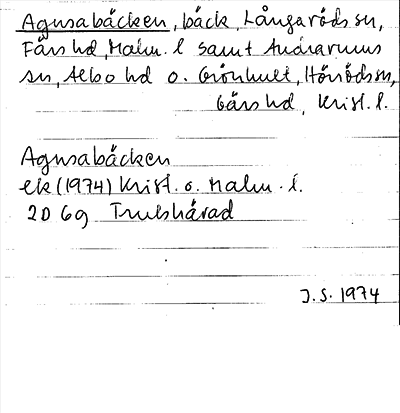 Agnsabäcken, bäck, Långaröds sn,
Färs hd, Malm. l samt Andrarums
sn, Albo hd o. Grönhult, Hörröds sn,
Gärs hd, Krist. l.
Agnsabäcken
ek (1974) Krist. o. Malm. l.
2D 6g Trulshärad
J.S. 1974